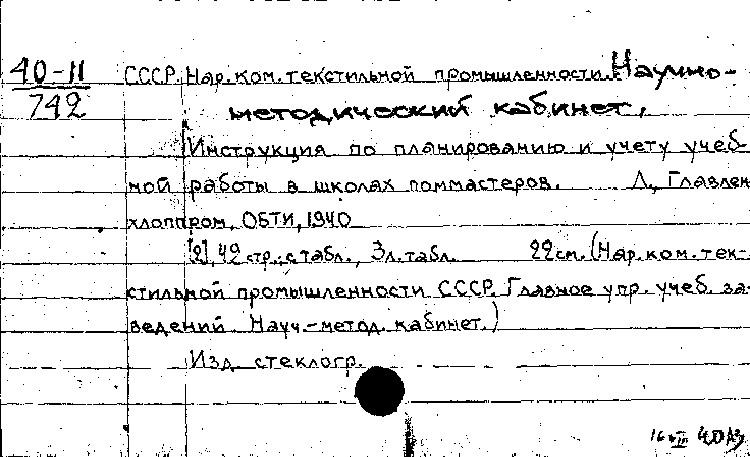 40-11
742
СССР. Нар. ком. текстильной промышленности. Научно-
методический кабинет.
Инструкция по планированию и учету учеб-
ной работы в школах поммастеров. Л., Главлен-
хлоппром, ОБТИ, 1940
[2], 42 стр. с табл., 3 л. табл. 22 см. (Нар. ком. тек-
стильной промышленности СССР. Главное упр. учеб. за-
ведений. Науч.-метод. кабинет.)
Изд. стеклогр.